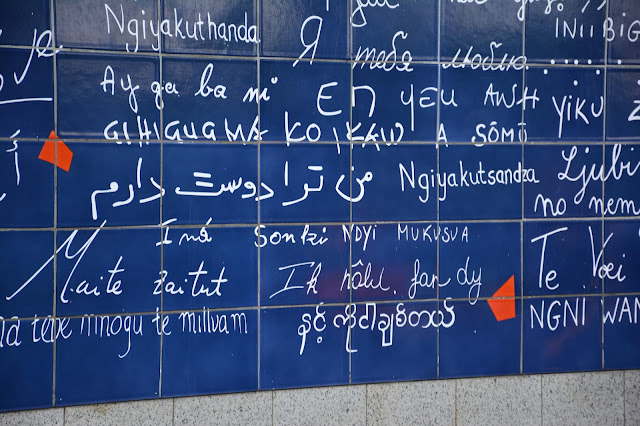 Ngiyakuthanda
Я тебе люблю
INII BIG
Ay ga ba ni
EN YEU ANH
YIKU
GIHIGUGMA KO IKAW
A SÒMÚ
من ترا دوست دارم
Ngiyakutsandza
Ljubi
no nem
Iná Sonki
NDYI MUKUSUA
Maite zaitut
Ik hâld fan dy
Te Voei
teve mnogu te millvam
နင့်ကိုငါချစ်တယ်
NGNI WAN